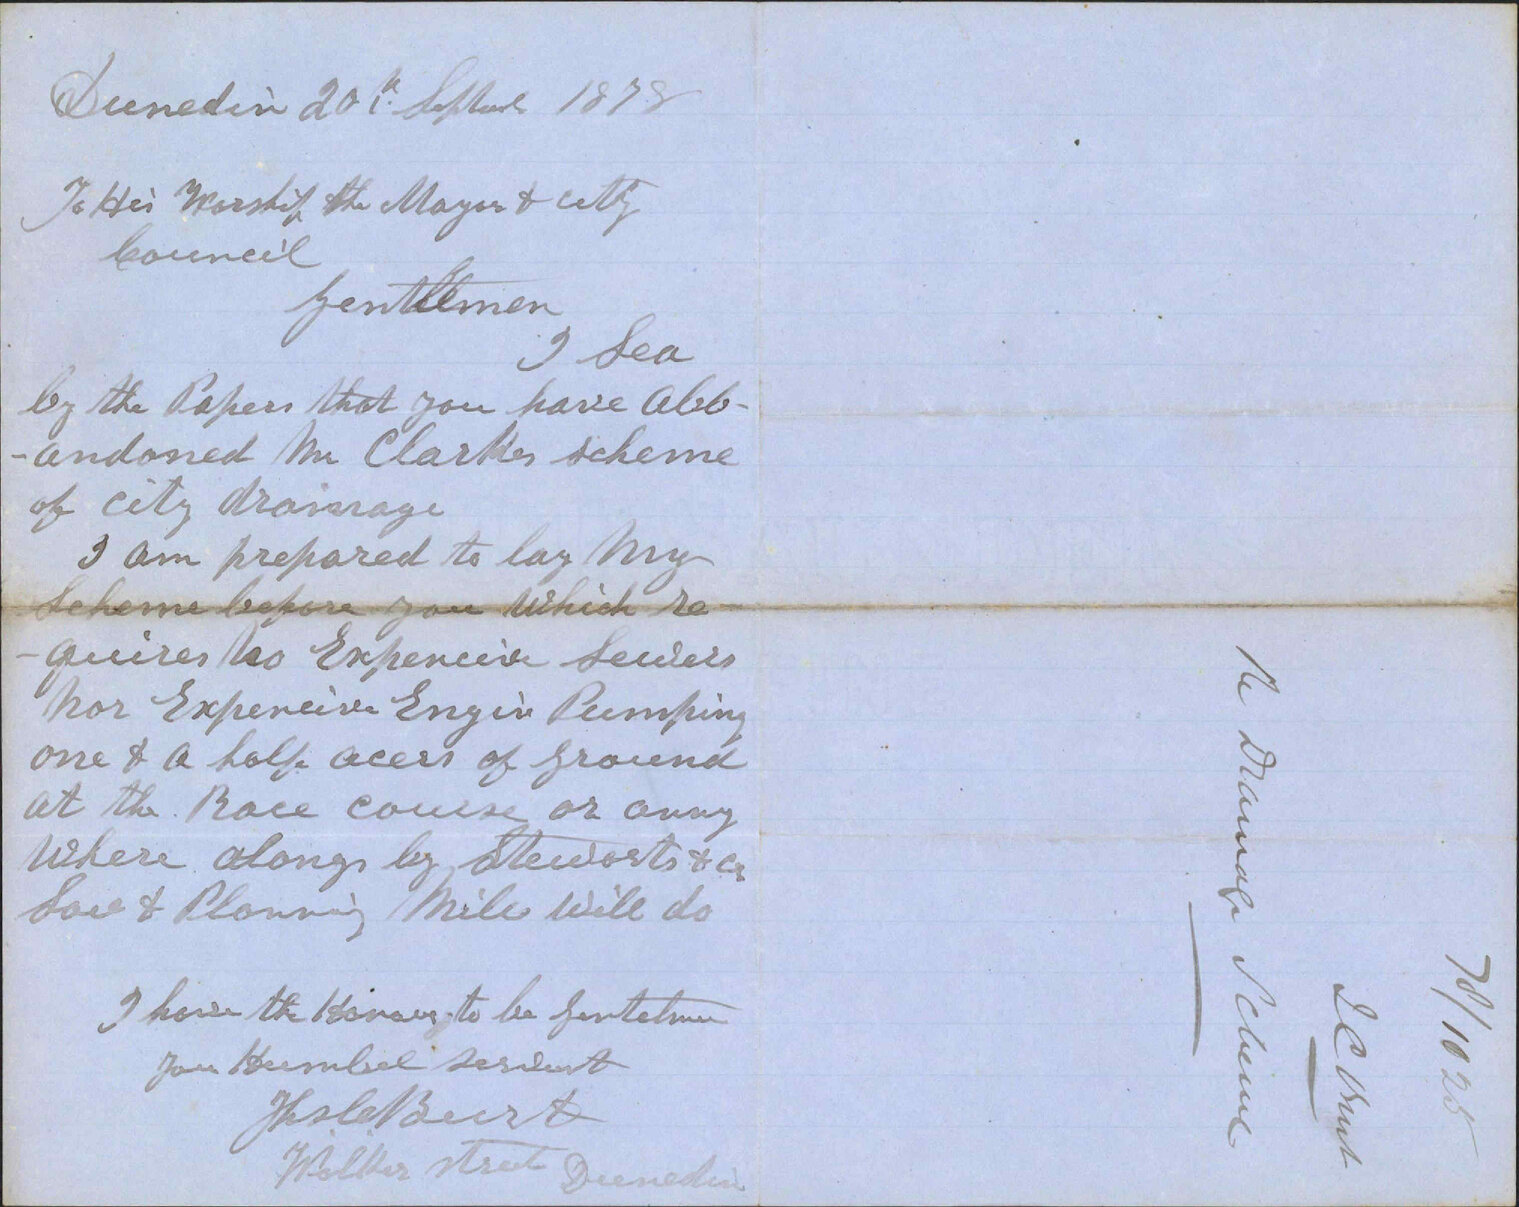 Dunedin 20th September 1878
To His Worship the Mayor & city
Council
Gentlemen
I Sea
by the Papers that you have Abb-
-andoned Mr Clarkes scheme
of city drainage
I am prepared to lay My
Scheme before you which re-
-quires no Expenceive Sewers
Nor Expenceive Engin Pumping
one & a half acers of ground
at the Race course or anny
Where alongs by Stewarts & Co
Saw & Planning Mile will do
I have the Honour to be Gentelmen
your Humbel servent
Burt
Walker street Dunedin
Re Drainage Scheme
Burt
78/1025